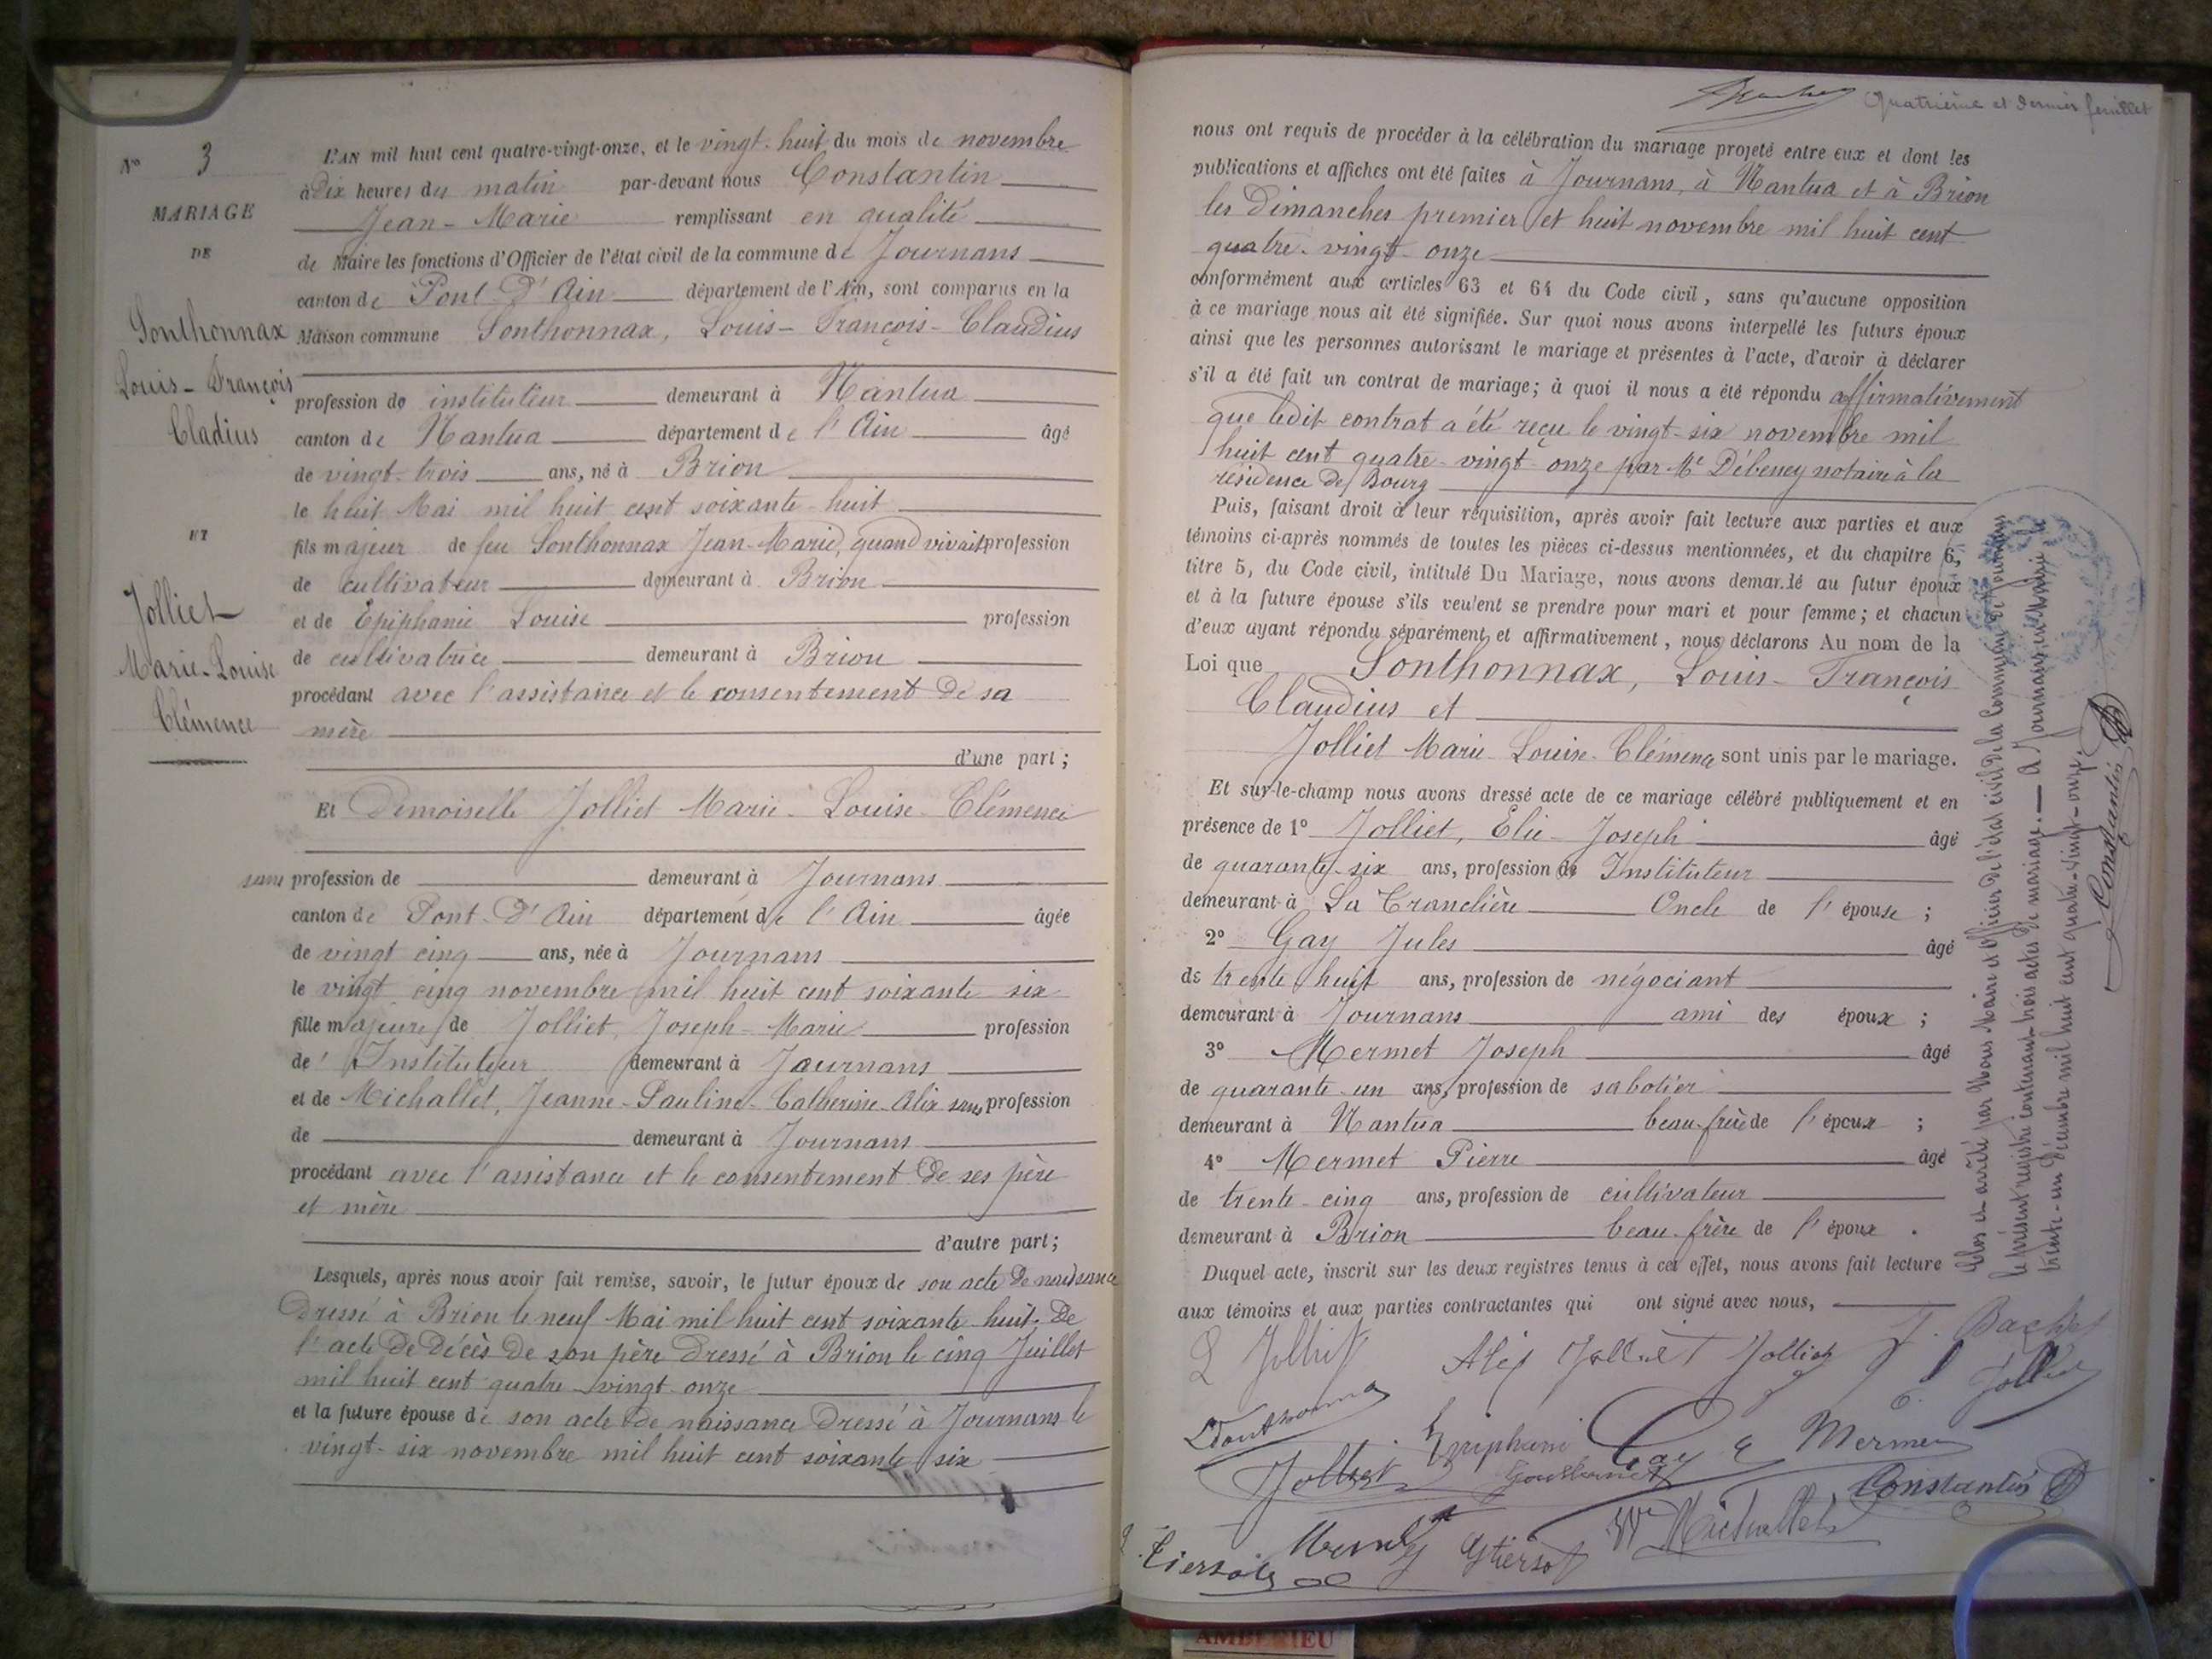 N° 3
MARIAGE
DE
Sonthonnax
Louis-François
Cladius
ET
Jolliet
Marie-Louise
Clémence
L'AN mil huit cent quatre-vingt-onze, et le vingt-huit du mois de novembre
à Dix heures du matin par-devant nous Constantin
Jean-Marie remplissant en qualité
de Maire les fonctions d'Officier de l'état civil de la commune de Journans
canton de Pont-D'Ain département de l'Ain, sont comparus en la
Maison commune Sonthonnax, Louis-François-Claudius
profession de instituteur demeurant à Nantua
canton de Nantua département de l'Ain âgé
de vingt-trois ans, né à Brion
le huit Mai mil huit cent soixante-huit
fils majeur de feu Sonthonnax Jean-Marie, quand vivait profession
de cultivateur demeurant à Brion
et de Epiphanie Louise profession
de cultivatrice demeurant à Brion
procédant avec l'assistance et le consentement de sa
mère
d'une part;
Et Demoiselle Jolliet Marie-Louise-Clémence
sans profession de demeurant à Journans
canton de Pont-D'Ain département de l'Ain âgée
de vingt cinq ans, née à Journans
le vingt cinq novembre mil huit cent soixante six
fille majeure de Jolliet, Joseph-Marie profession
de Instituteur demeurant à Journans
et de Michallet, Jeanne-Pauline-Catherine-Alix sans profession
de demeurant à Journans
procédant avec l'assistance et le consentement de ses père
et mère
d'autre part;
Lesquels, après nous avoir fait remise, savoir, le futur époux de son acte de naissance
Dressé à Brion le neuf Mai mil huit cent soixante-huit, De
l'acte De Décès De son père Dressé à Brion le cinq Juillet
mil huit cent quatre-vingt onze
et la future épouse de son acte de naissance Dressé à Journans le
vingt-six novembre mil huit cent soixante six
Quatrième et dernier feuillet
nous ont requis de procéder à la célébration du mariage projeté entre eux et dont les
publications et affiches ont été faites à Journans, à Nantua et à Brion
les Dimanches premier et huit novembre mil huit cent
quatre-vingt-onze
conformément aux articles 63 et 64 du Code civil, sans qu'aucune opposition
à ce mariage nous ait été signifiée. Sur quoi nous avons interpellé les futurs époux
ainsi que les personnes autorisant le mariage et présentes à l'acte, d'avoir à déclarer
s'il a été fait un contrat de mariage; à quoi il nous a été répondu affirmativement
que ledit contrat a été reçu le vingt-six novembre mil
huit cent quatre-vingt-onze par Me Débeney notaire à la
résidence de Bourg
Puis, faisant droit à leur réquisition, après avoir fait lecture aux parties et aux
témoins ci-après nommés de toutes les pièces ci-dessus mentionnées, et du chapitre 6,
titre 5, du Code civil, intitulé Du Mariage, nous avons demandé au futur époux
et à la future épouse s'ils veulent se prendre pour mari et pour femme; et chacun
d'eux ayant répondu séparément et affirmativement, nous déclarons Au nom de la
Loi que Sonthonnax, Louis-François
Claudius et
Jolliet Marie-Louise-Clémence sont unis par le mariage.
Et sur-le-champ nous avons dressé acte de ce mariage célébré publiquement et en
présence de 1° Jolliet, Elie-Joseph âgé
de quarante-six ans, profession de Instituteur
demeurant à La Tranclière Oncle de l'épouse;
2° Gay Jules âgé
de trente huit ans, profession de négociant
demeurant à Journans ami des époux;
3° Mermet Joseph âgé
de quarante-un ans, profession de sabotier
demeurant à Nantua beau-frère de l'époux;
4° Mermet Pierre âgé
de trente-cinq ans, profession de cultivateur
demeurant à Brion beau-frère de l'époux.
Duquel acte, inscrit sur les deux registres tenus à cet effet, nous avons fait lecture
aux témoins et aux parties contractantes qui ont signé avec nous,
L Jolliet Alix Jolliet Jolliet J. Bachet
E. Jolliet
Sonthonnax
Epiphanie Gay Mermet
Jolliet Sonthonnax Constantin
Mermet Tiersot Michallet
Tiersot
Clos et arrêté par Nous Maire et Officier de l'état civil de la Commune de Journans
le présent registre contenant trois actes de mariage. — A Journans, en Mairie le
trente-un Décembre mil huit cent quatre-vingt-onze.
Constantin
AMBERIEU